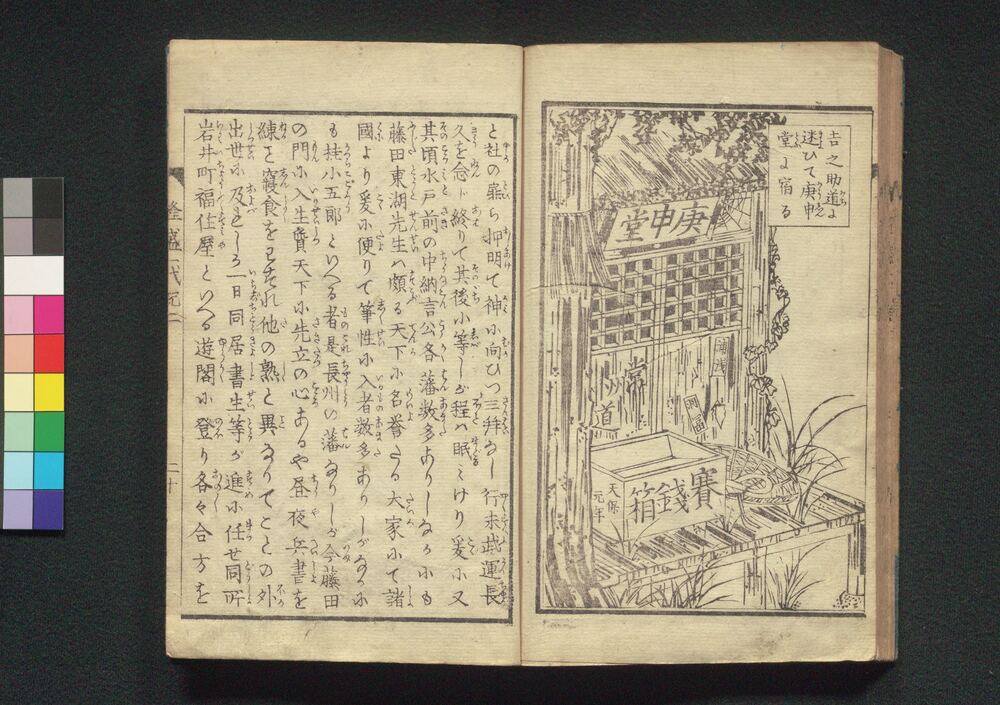 吉之助道に
迷ひて庚申
堂に宿る
庚申堂
賽錢箱
天保
元年
と社の扉ら押明て神に向ひつ三拜なし行末武運長
久を念じ終りて其後小等しが程ハ眠ミけり爰に又
其頃水戸前の中納言公各藩数多ありしなるにも
藤田東湖先生ハ頗る天下に名誉たる大家にて諸
國より爰に便りて筆性に入者数多ありしがなるに
も桂小五郎といへる者是長州の藩なりしが今藤田
の門に入生質天下に先立の心あるや昼夜兵書を
練を寢食をわすれ他の熟と異なりてことの外
出世に及としろ一日同居書生等が進に任せ同所
岩井町福住屋といへる遊閣に登り各々合方を
二十